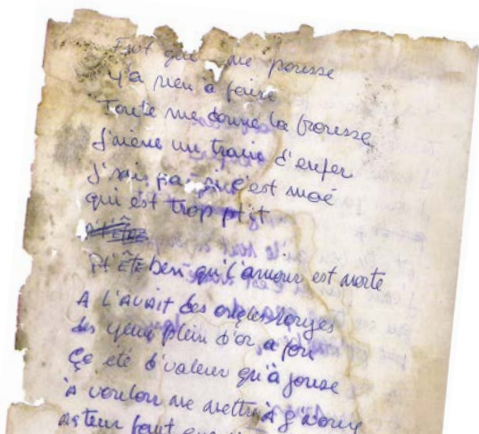 Faut que me pousse
Y'a rien à faire
Toute me donne la frousse
J'mène un train d'enfer
J'sais pas si c'est moé
qui est trop p'tit
P't'ÊTE ben qu'l'amour est morte
A l'avait des ongles rouges
des yeux plein d'or
Ça été d'valeur qu'à
À voulou me mettre à
faut que